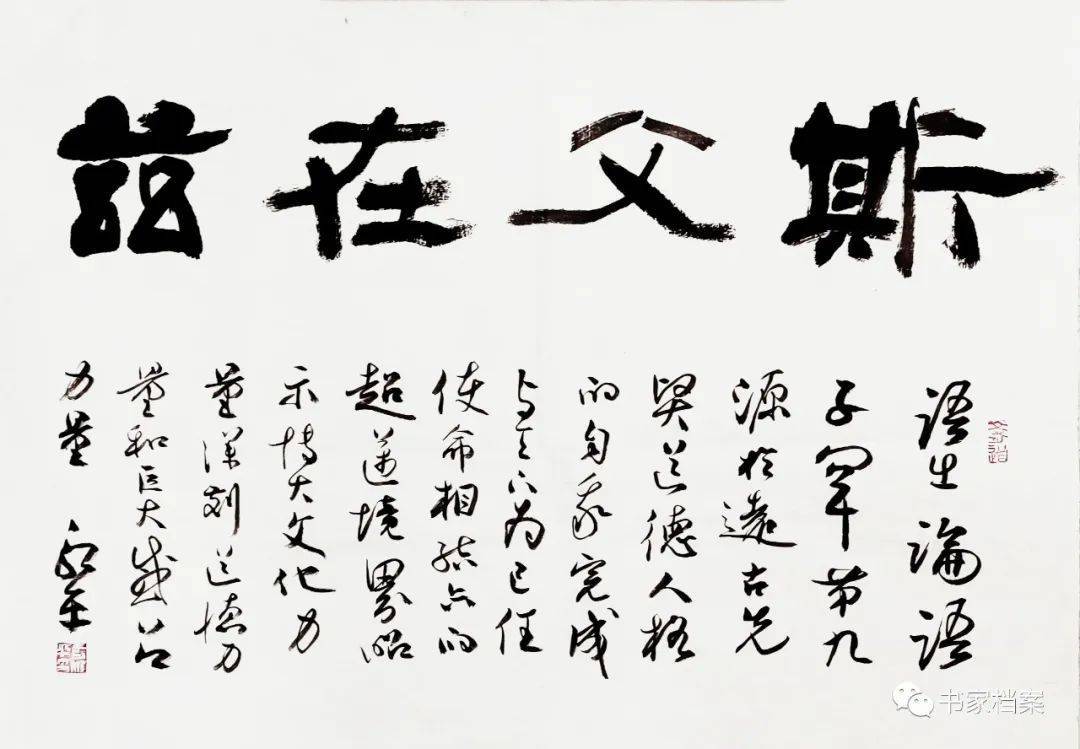 斯文在兹
语出論语
子罕第九
源於遠古先
贤道德人格
的自我完成
与天下为己任
使命相结合的
超迈境界昭
示博大文化力
量深刻道德力
量和巨大感召
力量
书家档案